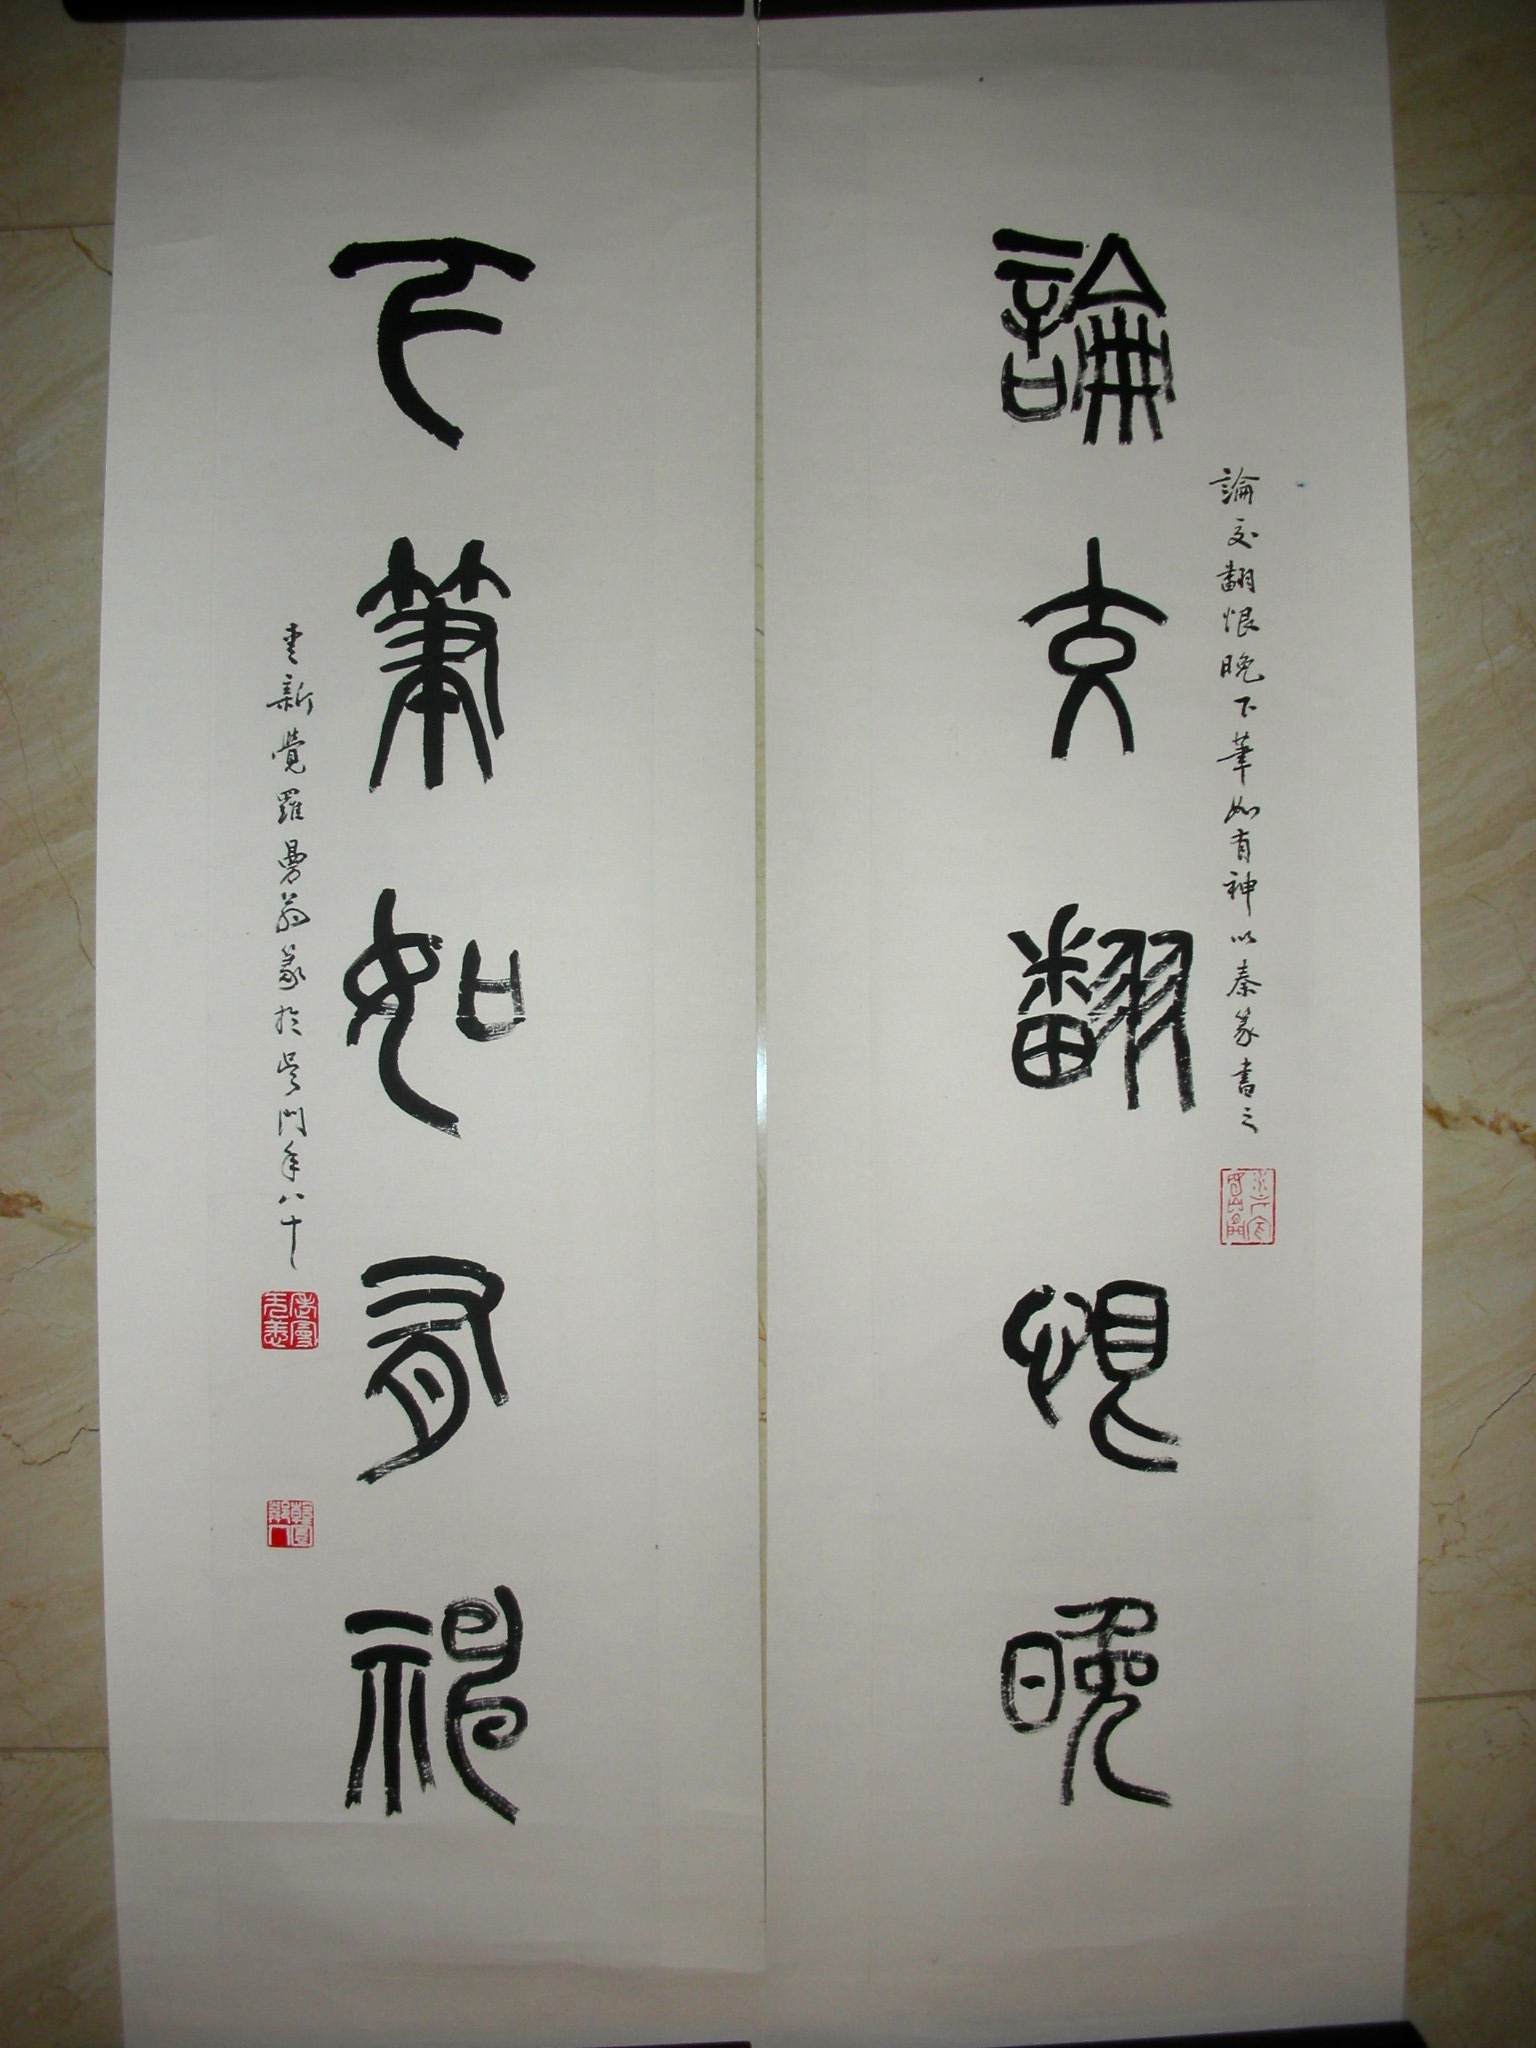 論交翻恨晚
論交翻恨晚下筆如有神以秦篆書之
下筆如有神
愛新覺羅曼翁篆於吳門年八十